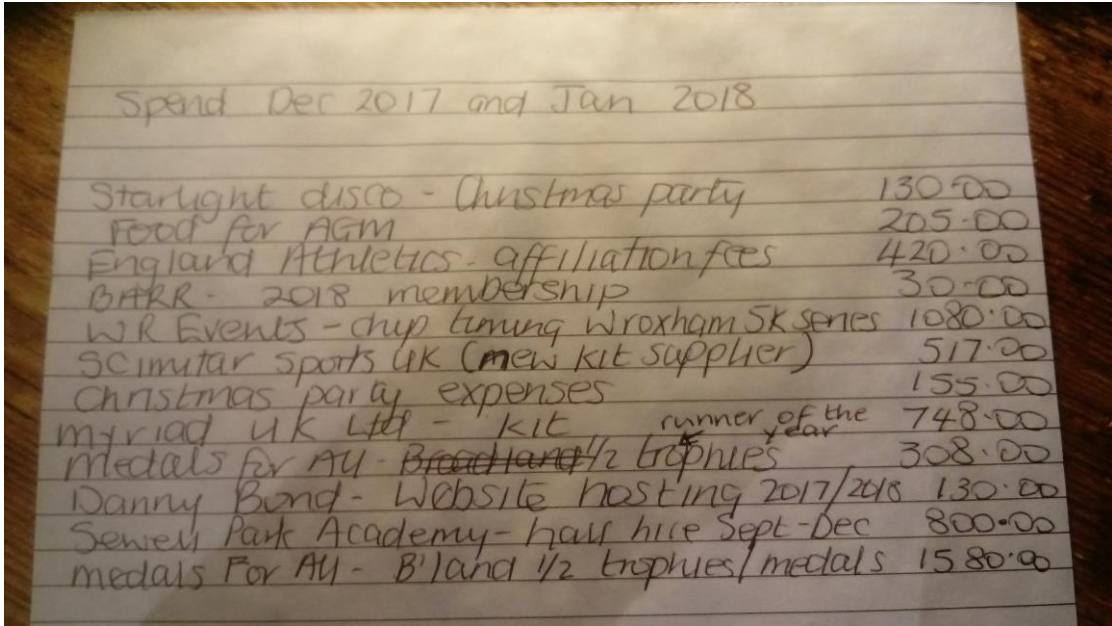 Spend Dec 2017 and Jan 2018
Starlight disco - Christmas party 130-00
Food for AGM 205.00
England Athletics - affiliation fees 420.00
BARR - 2018 membership 30-00
WR Events - chip timing Wroxham 5k series 1080.00
Scimitar Sports UK (new kit supplier) 517.00
Christmas party expenses 155.00
Myriad UK Ltd - Kit 748.00
runner of the year
Medals for All - Broadland 1/2 trophies 308.00
Danny Bond - Website hosting 2017/2018 130.00
Sewell Park Academy - hall hire Sept-Dec 800.00
Medals For All - B'land 1/2 trophies/medals 1580.00